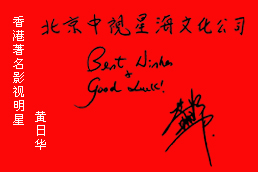 香港著名影视明星
黄日华
北京中视星海文化公司
Best Wishes
&
Good Luck!